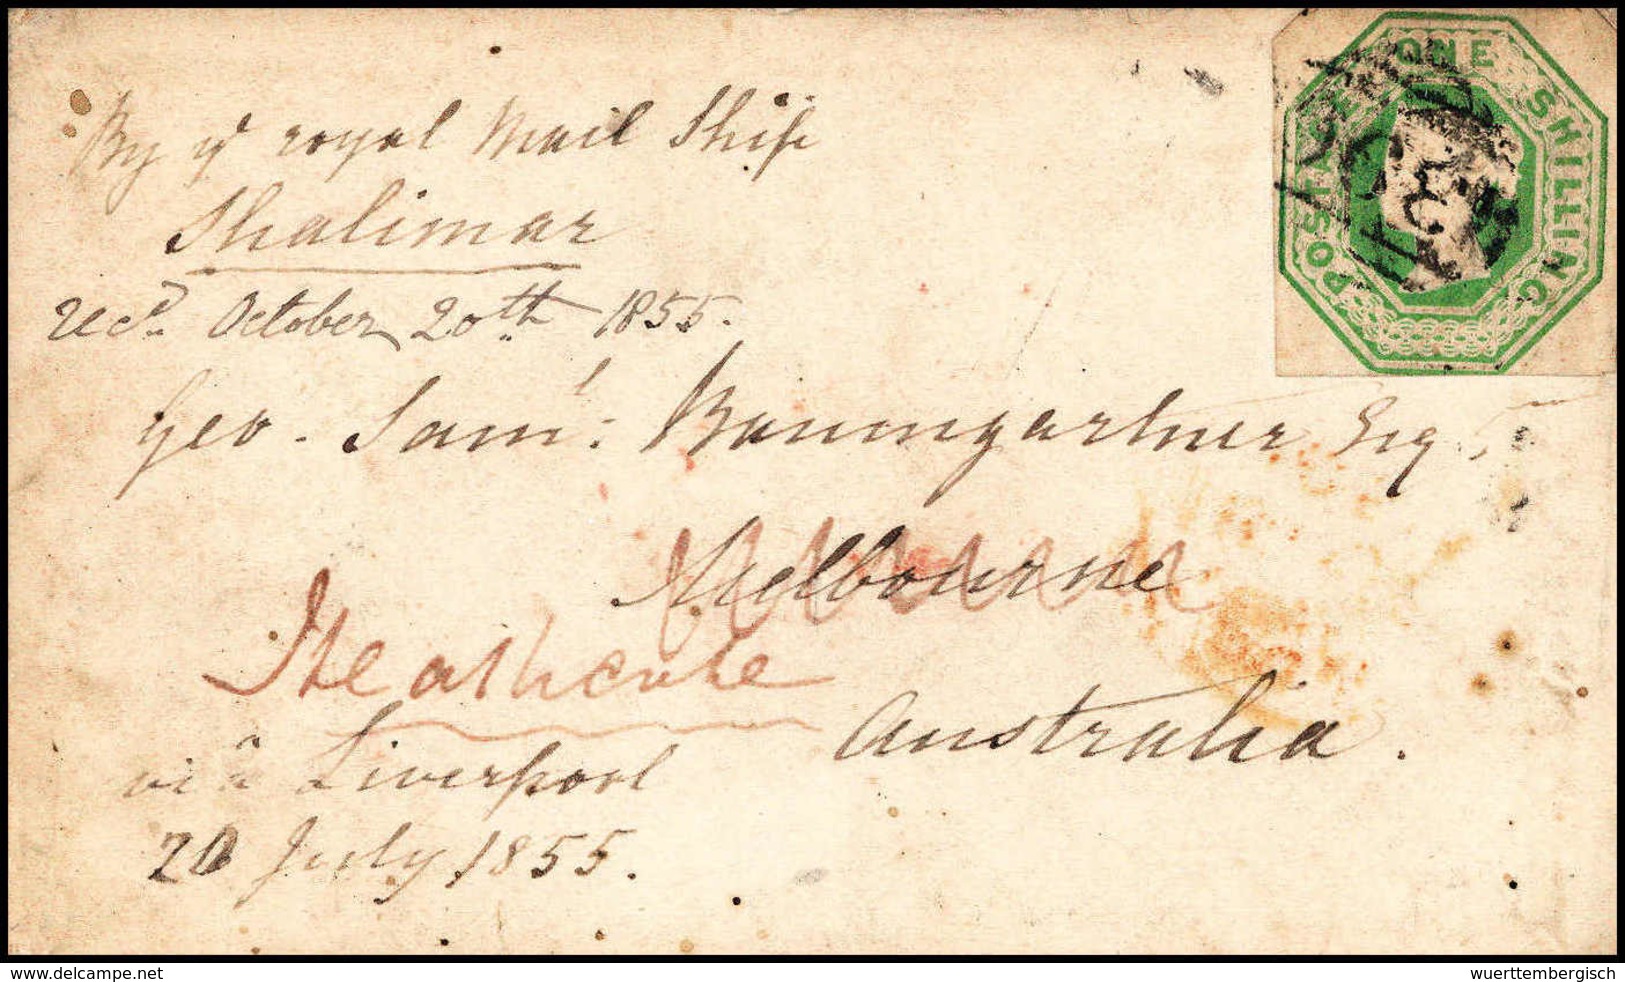 By yᵉ royal Mail Ship
Shalimar
recd. October 20th 1855.
Geo. Saml: Baumgartner Esq,
Melbourne
Heathcote
Australia.
viâ Liverpool
20 July 1855.
POSTAGE ONE SHILLING
delcampe.net
wuerttembergisch